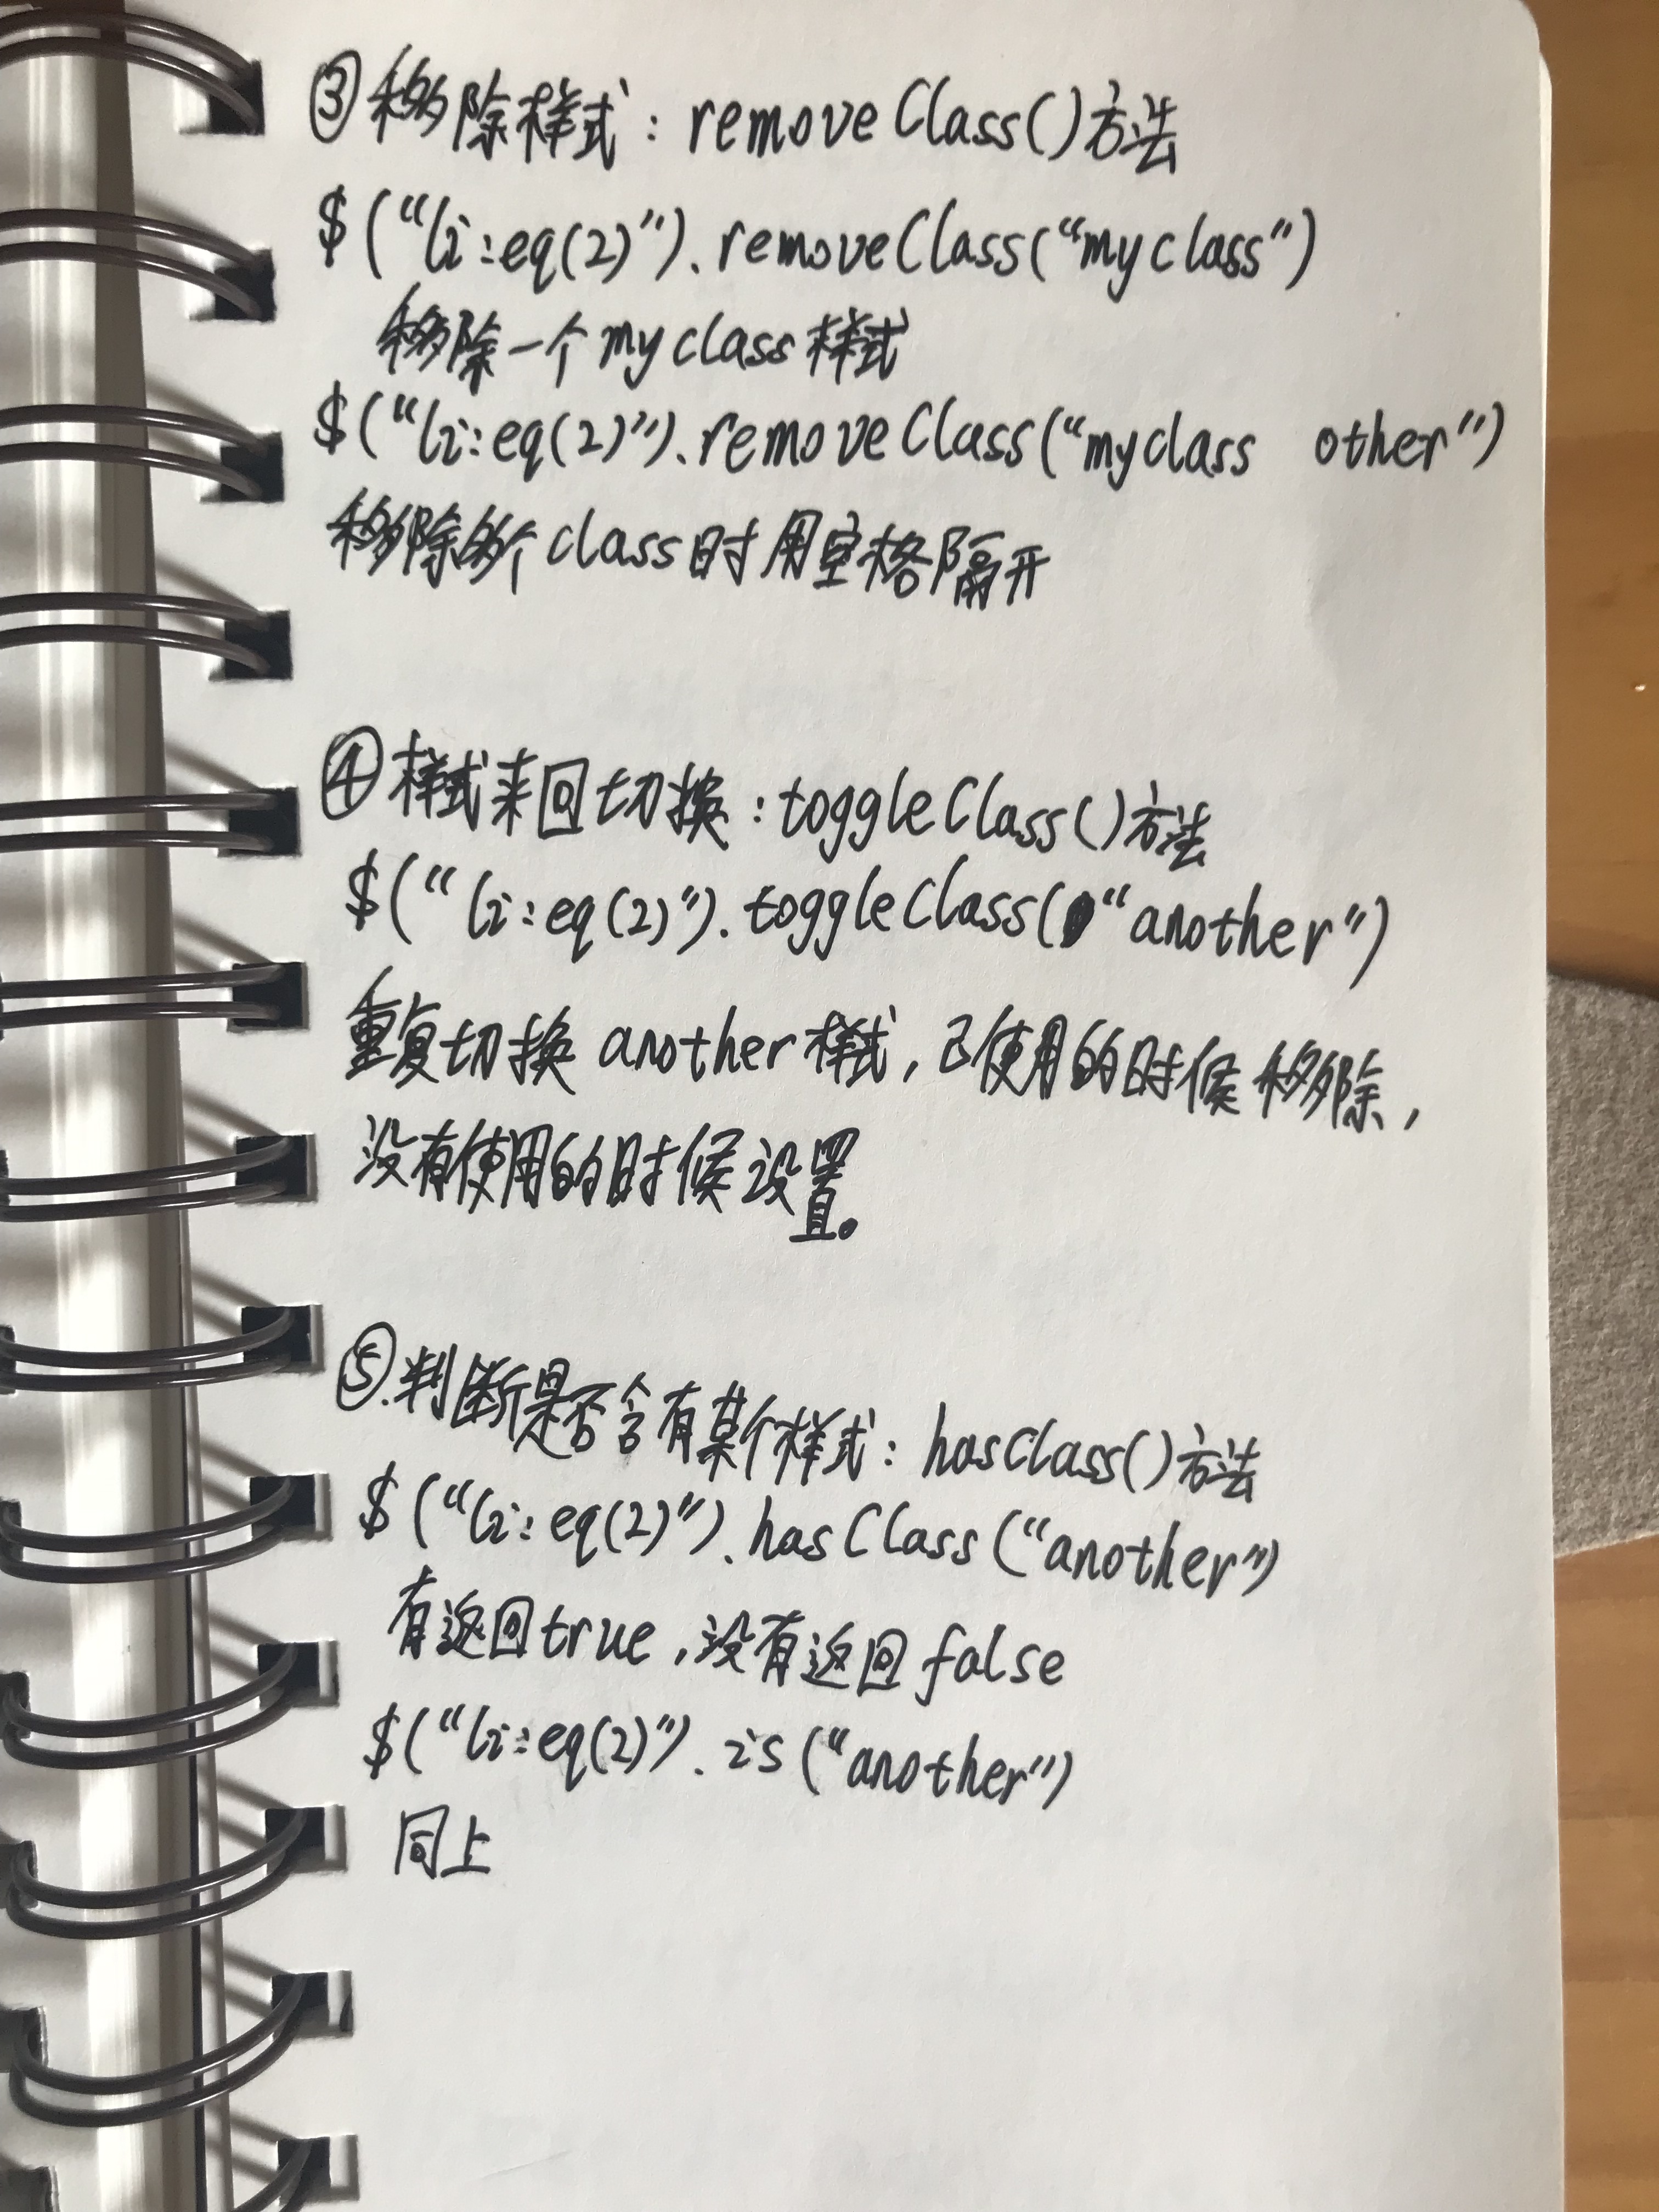 ③移除样式：removeClass()方法
$(“li:eq(2)”).removeClass(“myclass”)
移除一个myclass样式
$(“li:eq(2)”).removeClass(“myclass other”)
移除多个class时用空格隔开
④样式来回切换：toggleClass()方法
$(“li:eq(2)”).toggleClass(“another”)
重复切换another样式，已使用的时候移除，
没有使用的时候设置。
⑤.判断是否含有某个样式：hasClass()方法
$(“li:eq(2)”).hasClass(“another”)
有返回true，没有返回false
$(“li:eq(2)”).is(“another”)
同上